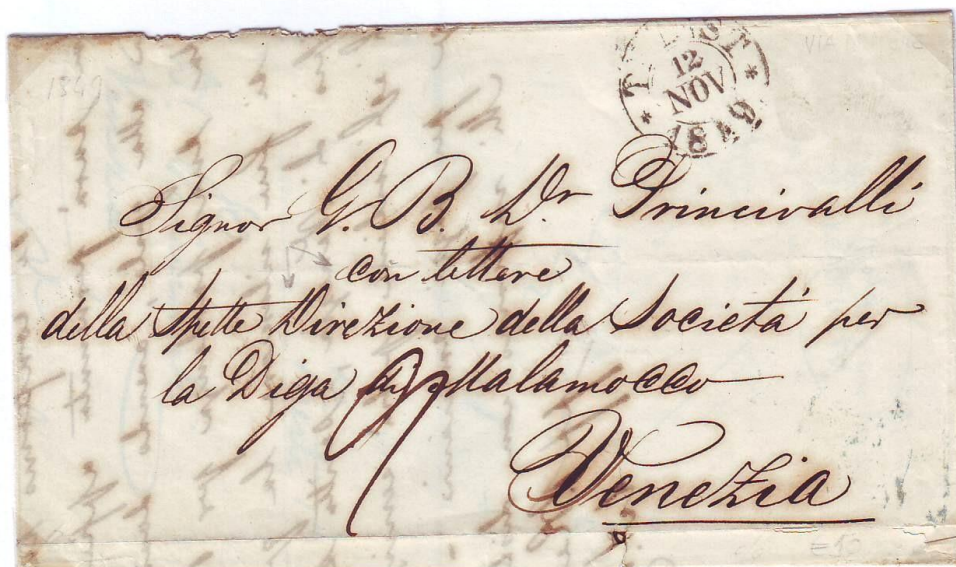 1849
TRIEST
12
NOV
1849
Signor G. B. Dr Princivalli
con lettere
della Spette Direzione della Societá per
la Diga di Malamocco
Venezia